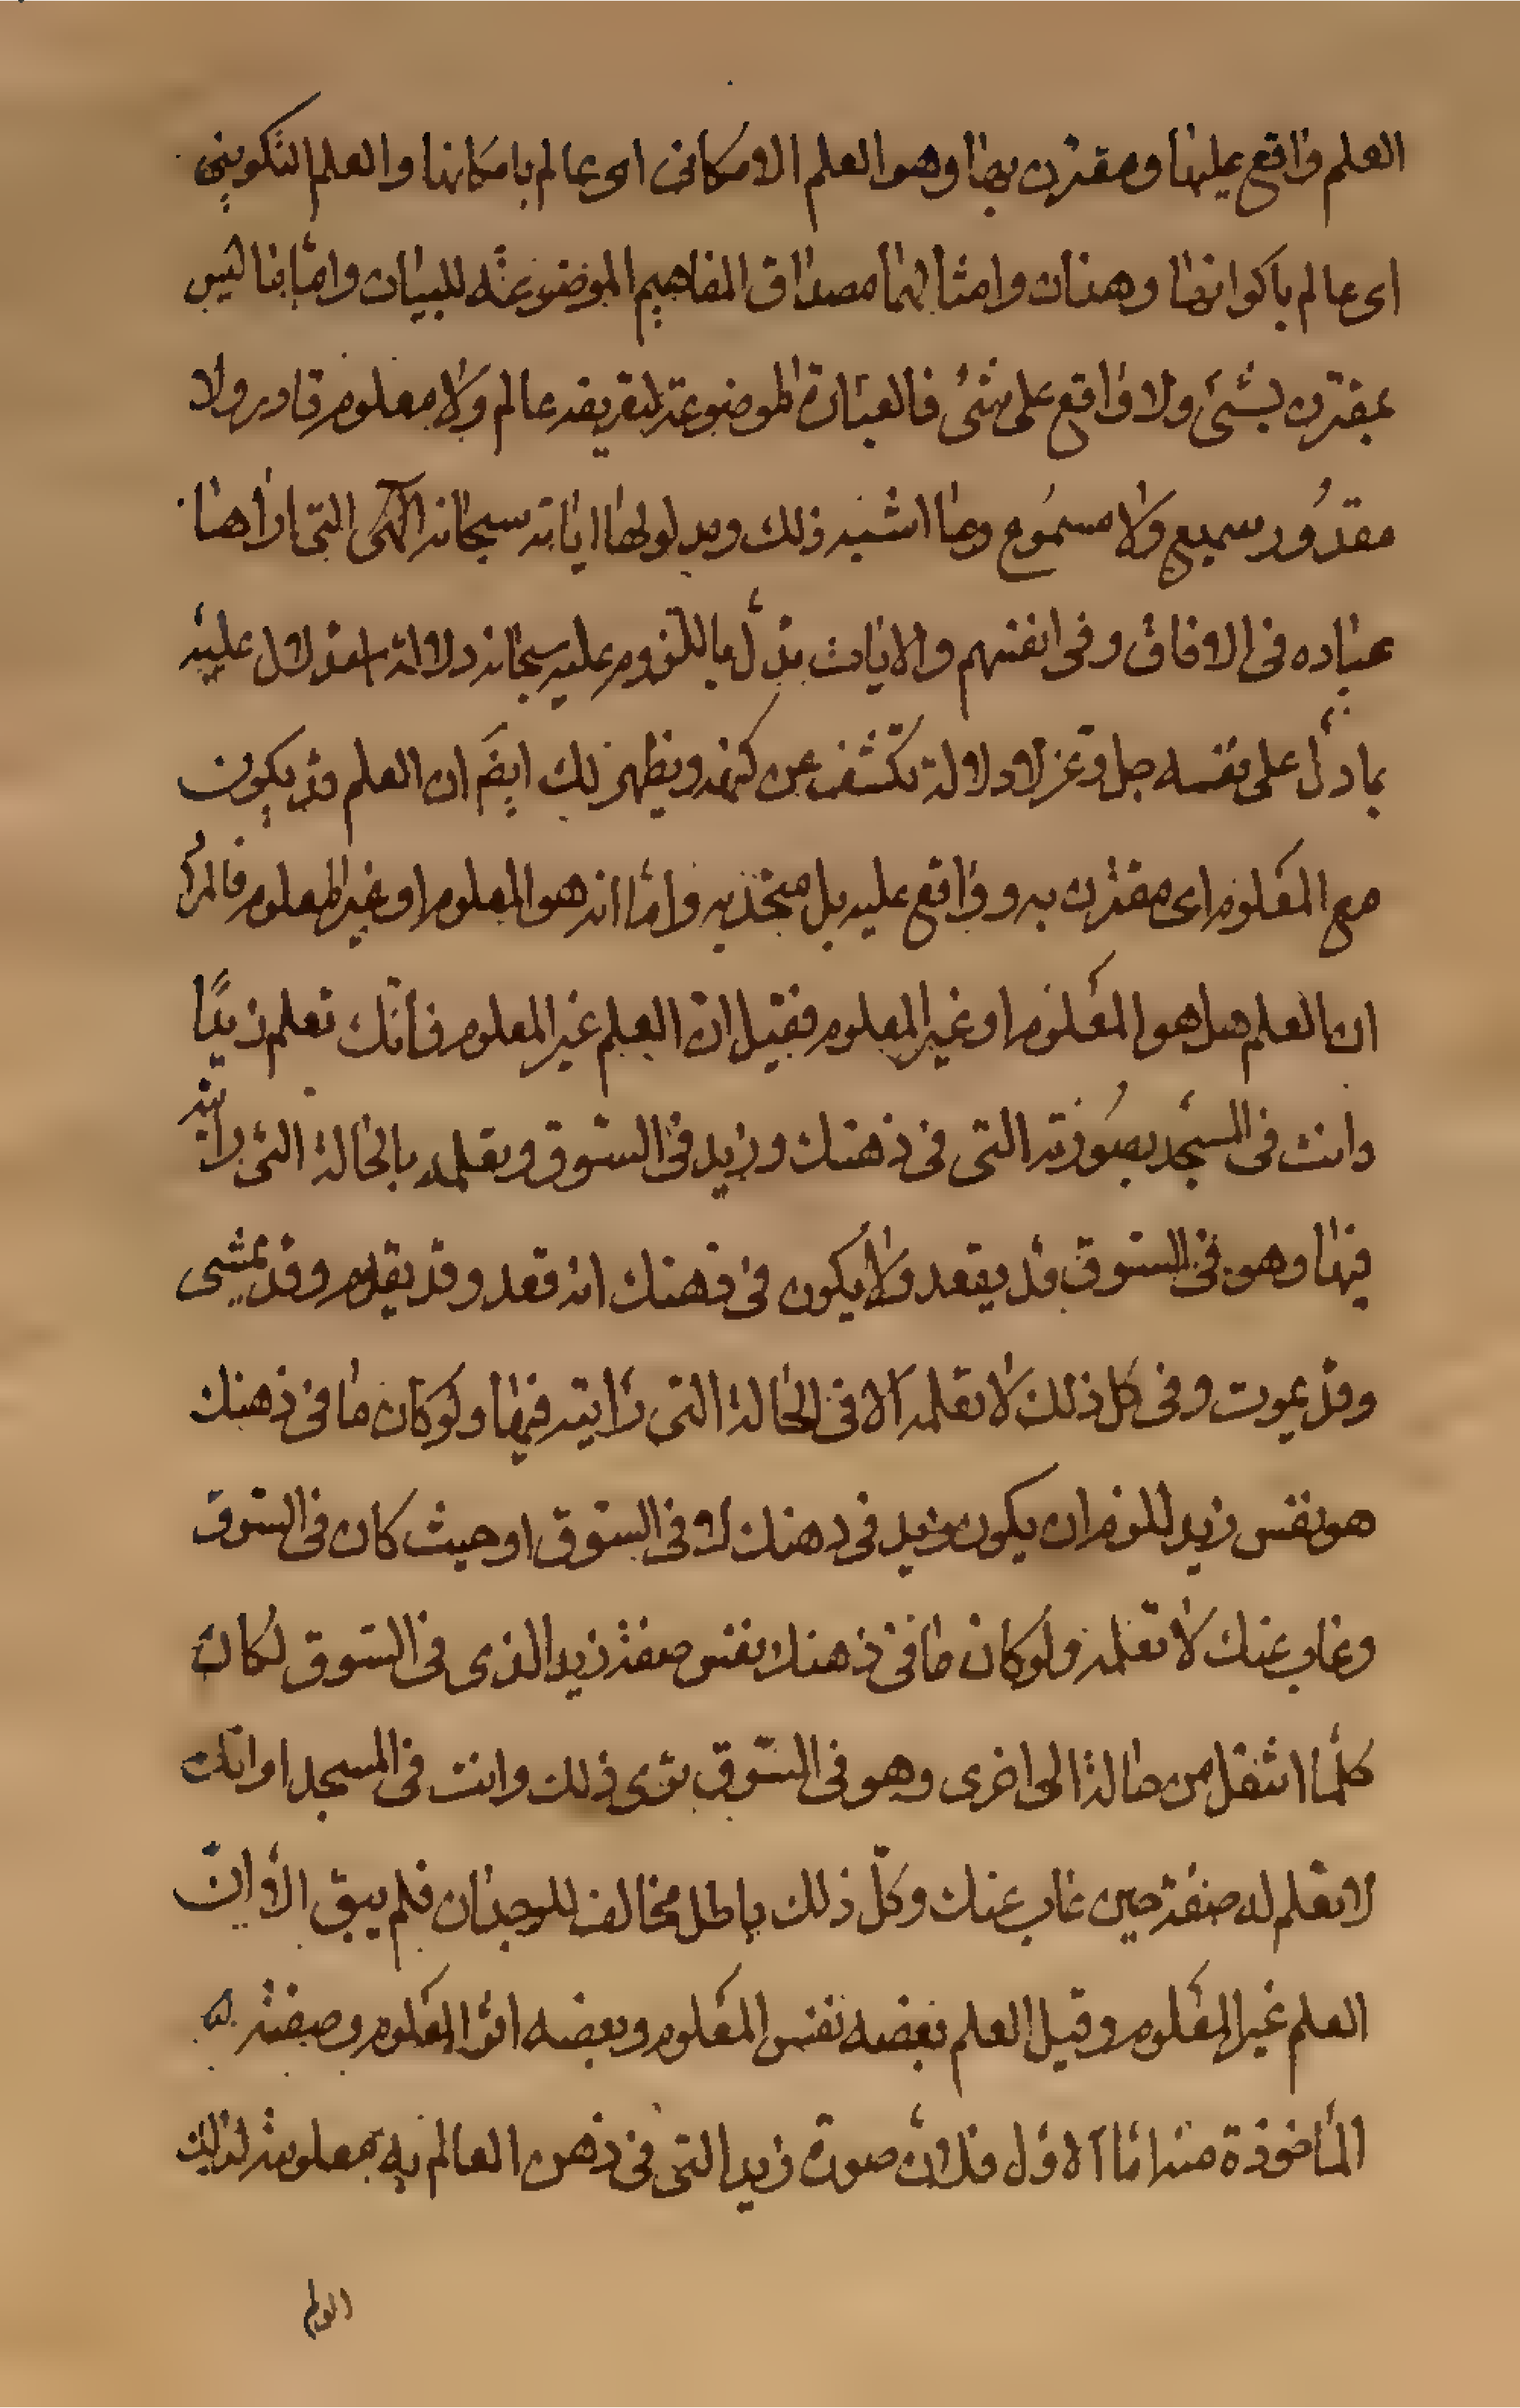 العلم واقع عليها ومقترن بها وهو العلم الامكانى اى عالم بامكانها والعلم التكوينى
اى عالم باكوانها وهذان وامثالهما مصداق المفاهيم الموضوعة للبيان واما ما ليس
بمقترن بشئ ولا واقع على شئ فالعبارة الموضوعة لتعريفه عالم ولا معلوم قادر ولا
مقدور سميع ولا مسموع وما اشبه ذلك ومدلولها اياته سبحانه التى اراها
عباده فى الافاق وفى انفسهم والايات تدل باللزوم عليه سبحانه دلالة استدلال عليه
بما دل على نفسه جل وعز لا دلالة تكشف عن كنهه ويظهر لك ايضَ ان العلم قد يكون
مع المعلوم اى مقترن به وواقع عليه بل متحد به واما انه هو المعلوم او غير المعلوم فالمراد
ان العلم هل هو المعلوم او غير المعلوم فقيل ان العلم غير المعلوم فانّك تعلم زيدًا
وانت فى المسجد بصورته التى فى ذهنك وزيد فى السّوق وتعلمه بالحالة التى رايته
فيها وهو فى السّوق قد يقعد ولا يكون فى ذهنك انه قعد وقد يقوم وقد يمشى
وقد يموت وفى كل ذلك لا تعلمه الّا فى الحالة التى رايته فيها ولو كان ما فى ذهنك
هو نفس زيد للزم ان يكون زيد فى ذهنك لا فى السّوق او حيث كان فى السّوق
وغاب عنك لا تعلمه ولو كان ما فى ذهنك نفس صفة زيد الذى فى السّوق لكان
كلّما انتقل من حالة الى اخرى وهو فى السّوق ترى ذلك وانت فى المسجد او انّك
لا تعلم له صفة حين غاب عنك وكلّ ذلك باطل مخالف للوجدان فلم يبق الّا انّ
العلم غير المعلوم وقيل العلم بعضه نفس المعلوم وبعضه اثر المعلوم وصفته
المأخوذة منه امّا الاوّل فلانّ صورة زيد التى فى ذهن العالم به معلومة لذلك